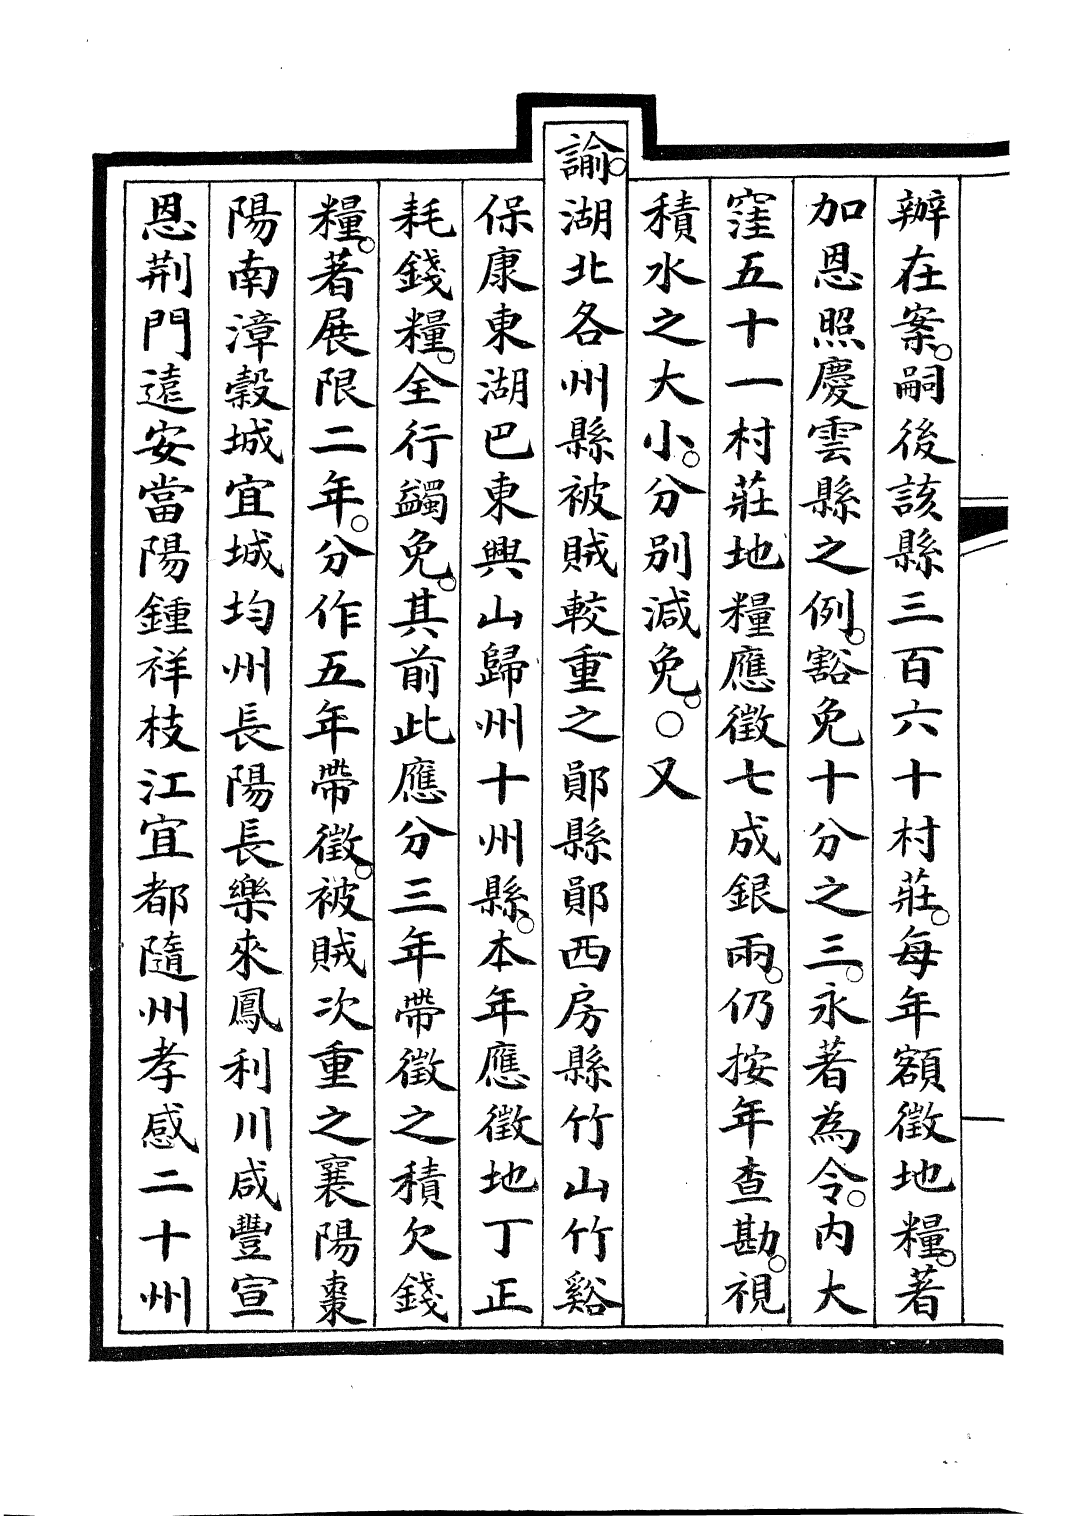 辦在案。嗣後該縣三百六十村莊。每年額徵地糧。著
加恩照慶雲縣之例。豁免十分之三。永著為令。內大
窪五十一村莊地糧應徵七成銀兩。仍按年查勘。視
積水之大小。分別減免。○又
諭。湖北各州縣被賊較重之鄖縣鄖西房縣竹山竹谿
保康東湖巴東興山歸州十州縣。本年應徵地丁正
耗錢糧。全行蠲免。其前此應分三年帶徵之積欠錢
糧。著展限二年。分作五年帶徵。被賊次重之襄陽棗
陽南漳穀城宜城均州長陽長樂來鳳利川咸豐宣
恩荊門遠安當陽鍾祥枝江宜都隨州孝感二十州